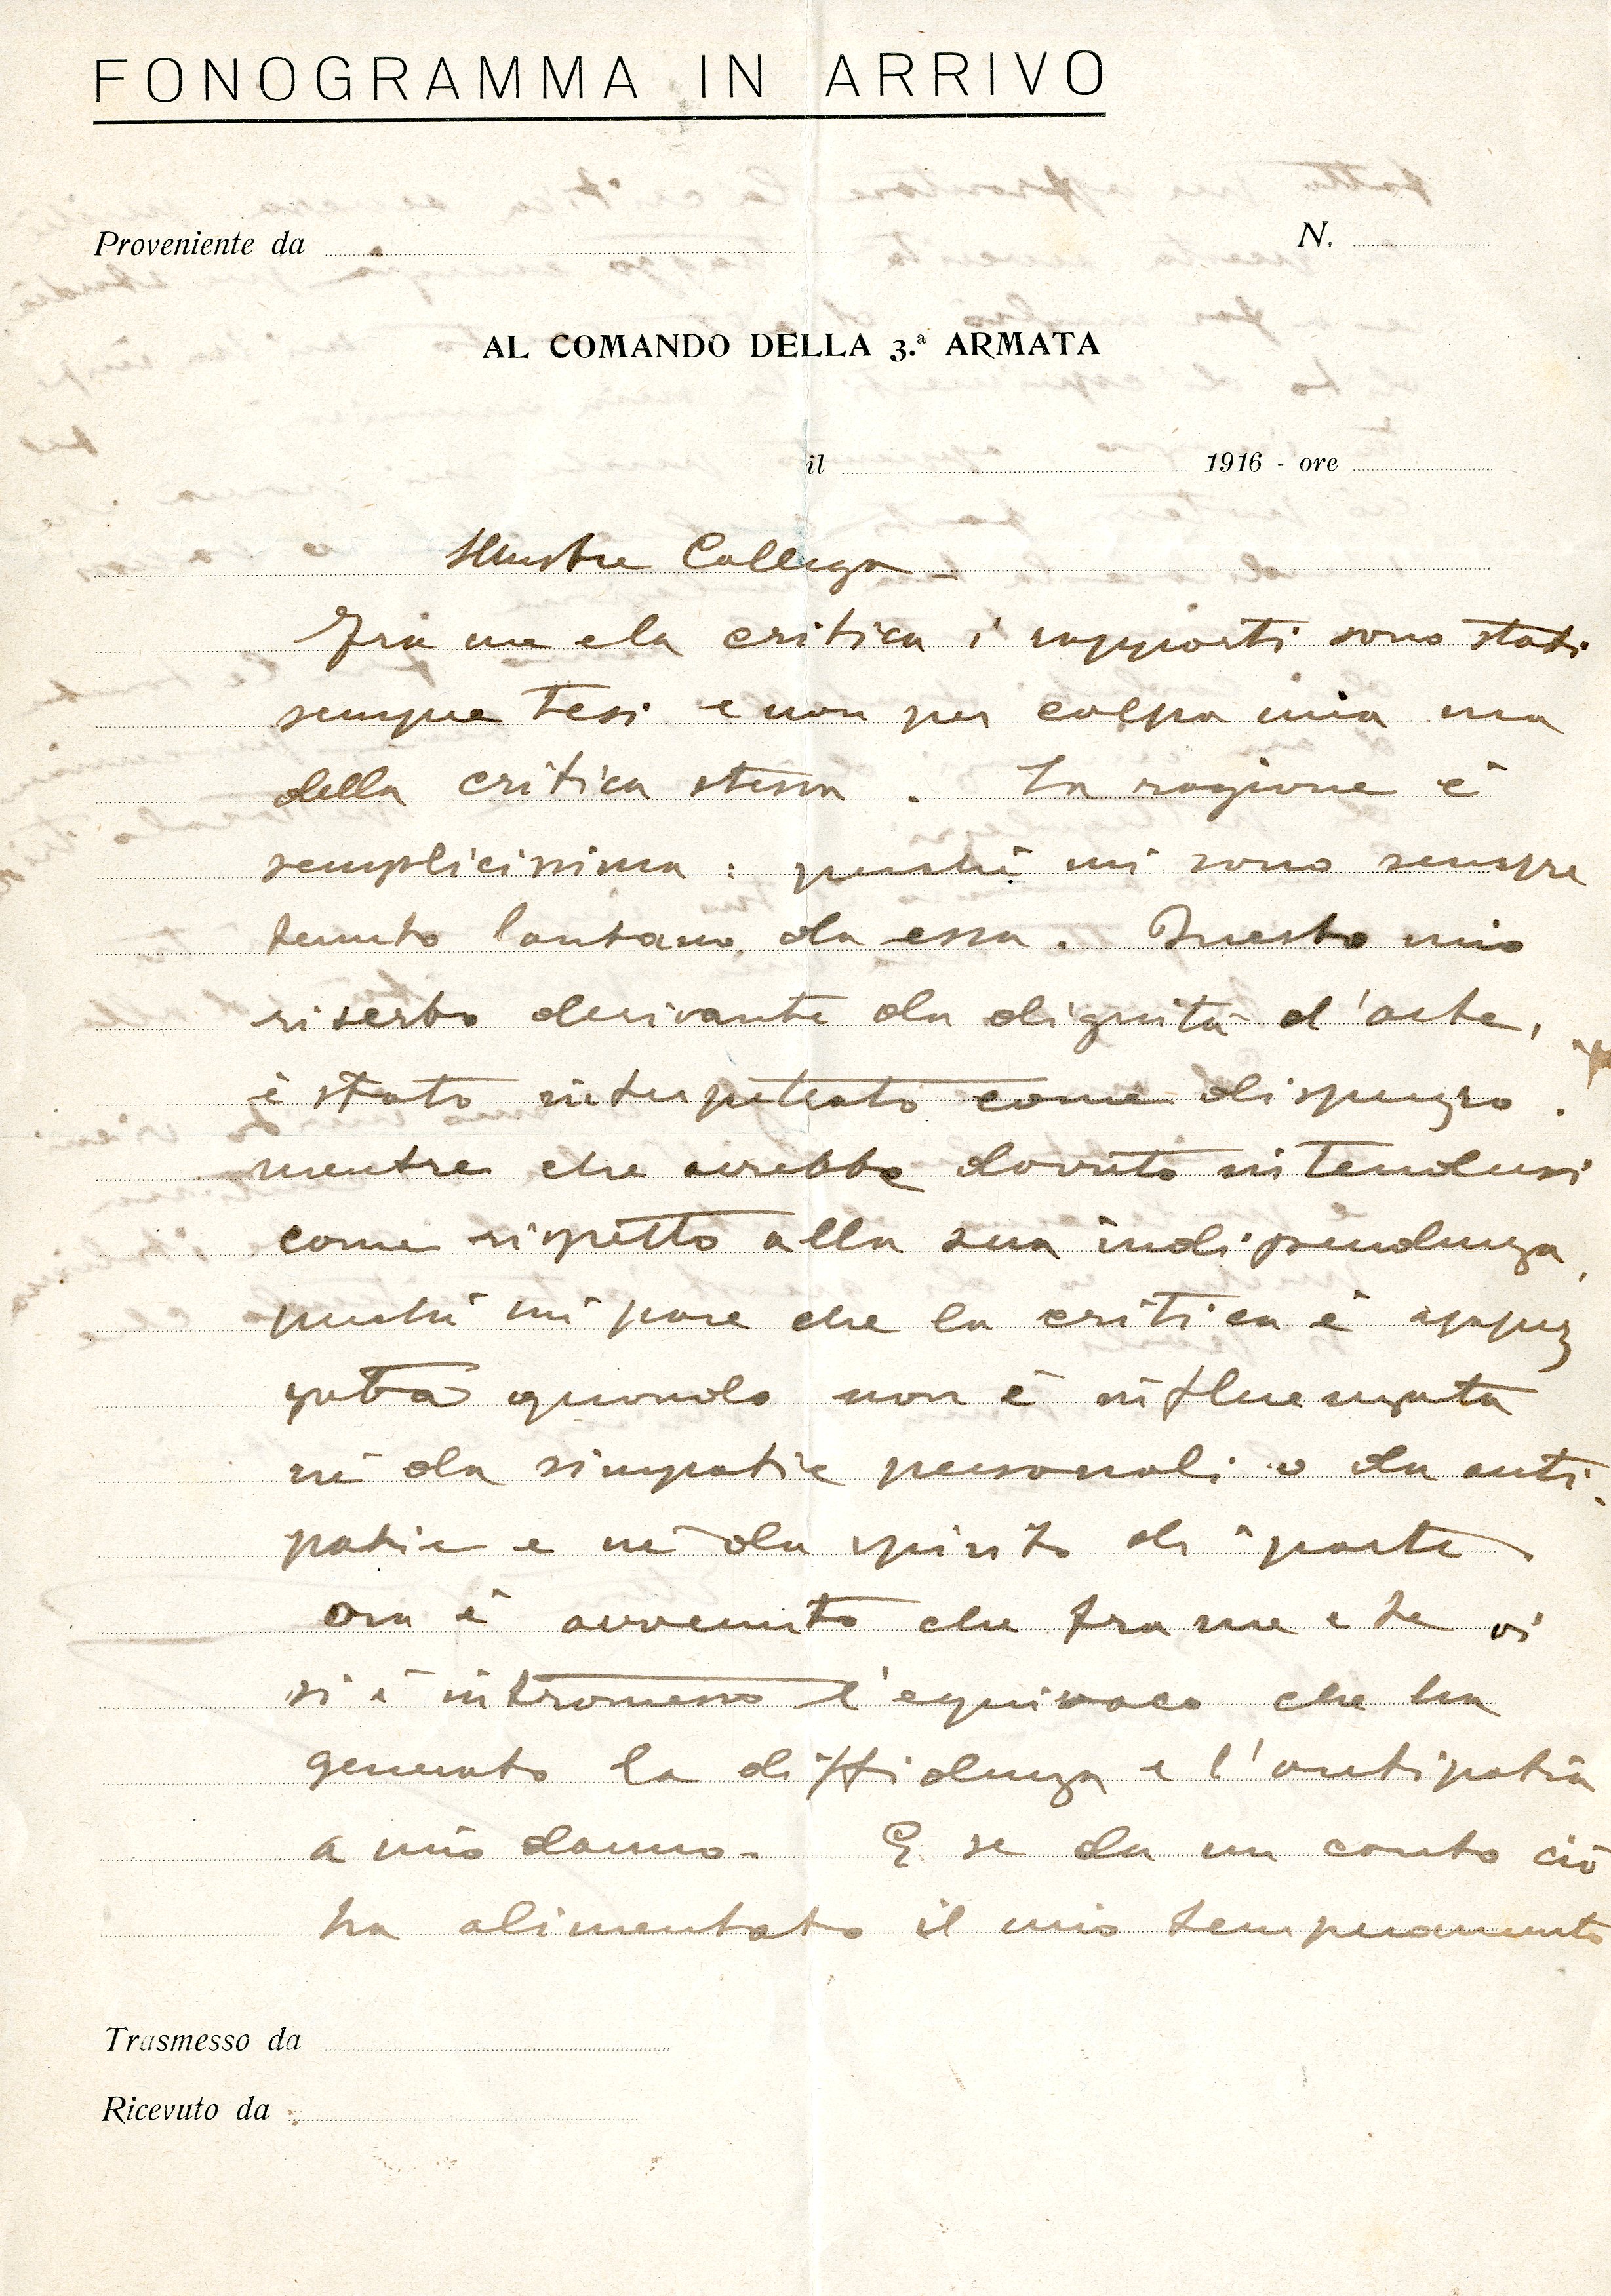 FONOGRAMMA IN ARRIVO
Proveniente da
N.
AL COMANDO DELLA 3.ª ARMATA
il 1916 - ore
Illustre Collega -
Fra me e la critica i rapporti sono stati
sempre tesi e non per colpa mia ma
della critica stessa. La ragione è
semplicissima: perchè mi sono sempre
tenuto lontano da essa. Questo mio
riserbo derivante da dignità d'arte,
è stato interpetrato come disprezzo.
mentre che avrebbe dovuto intendersi
come rispetto alla sua indipendenza,
perchè mi pare che la critica è apprez
zata quando non è influenzata
nè da simpatie personali o da anti-
patie e nè da spirito di parte.
Ora è avvenuto che fra me e te vi
si è intromesso l'equivoco che ha
generato la diffidenza e l'antipatia
a mio danno. E se da un canto ciò
ha alimentato il mio temperamento
Trasmesso da
Ricevuto da